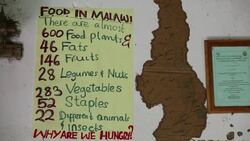 FOOD IN MALAWI
There are almost
600 Food plants &
46 Fats
146 Fruits
28 Legumes & Nuts
283 Vegetables
52 Staples
22 Different animals
& insects
WHY ARE WE HUNGRY?